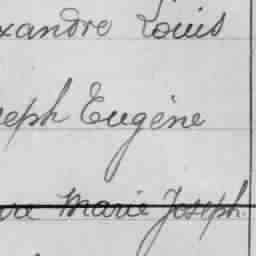 xandre Louis
seph Eugène
re Marie Joseph